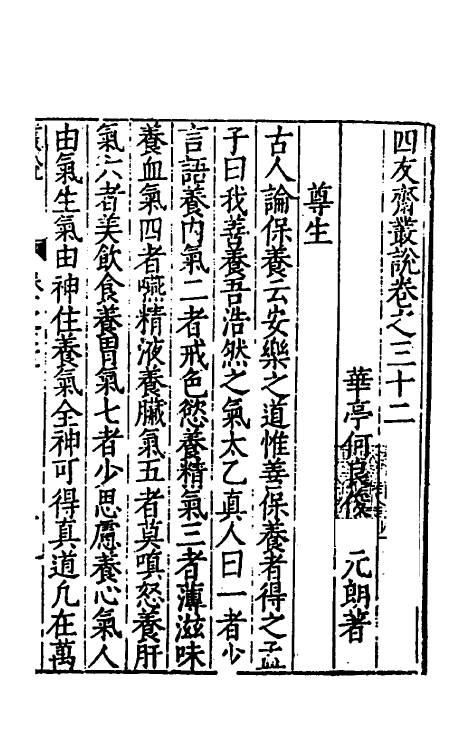 四友齋叢說卷之三十二
華亭何良俊　元朗著
尊生
古人論保養云安樂之道惟善保養者得之孟
子曰我善養吾浩然之氣太乙真人曰一者少
言語養內氣二者戒色慾養精氣三者薄滋味
養血氣四者嚥精液養臟氣五者莫嗔怒養肝
氣六者美飲食養胃氣七者少思慮養心氣人
由氣生氣由神住養氣全神可得真道凡在萬